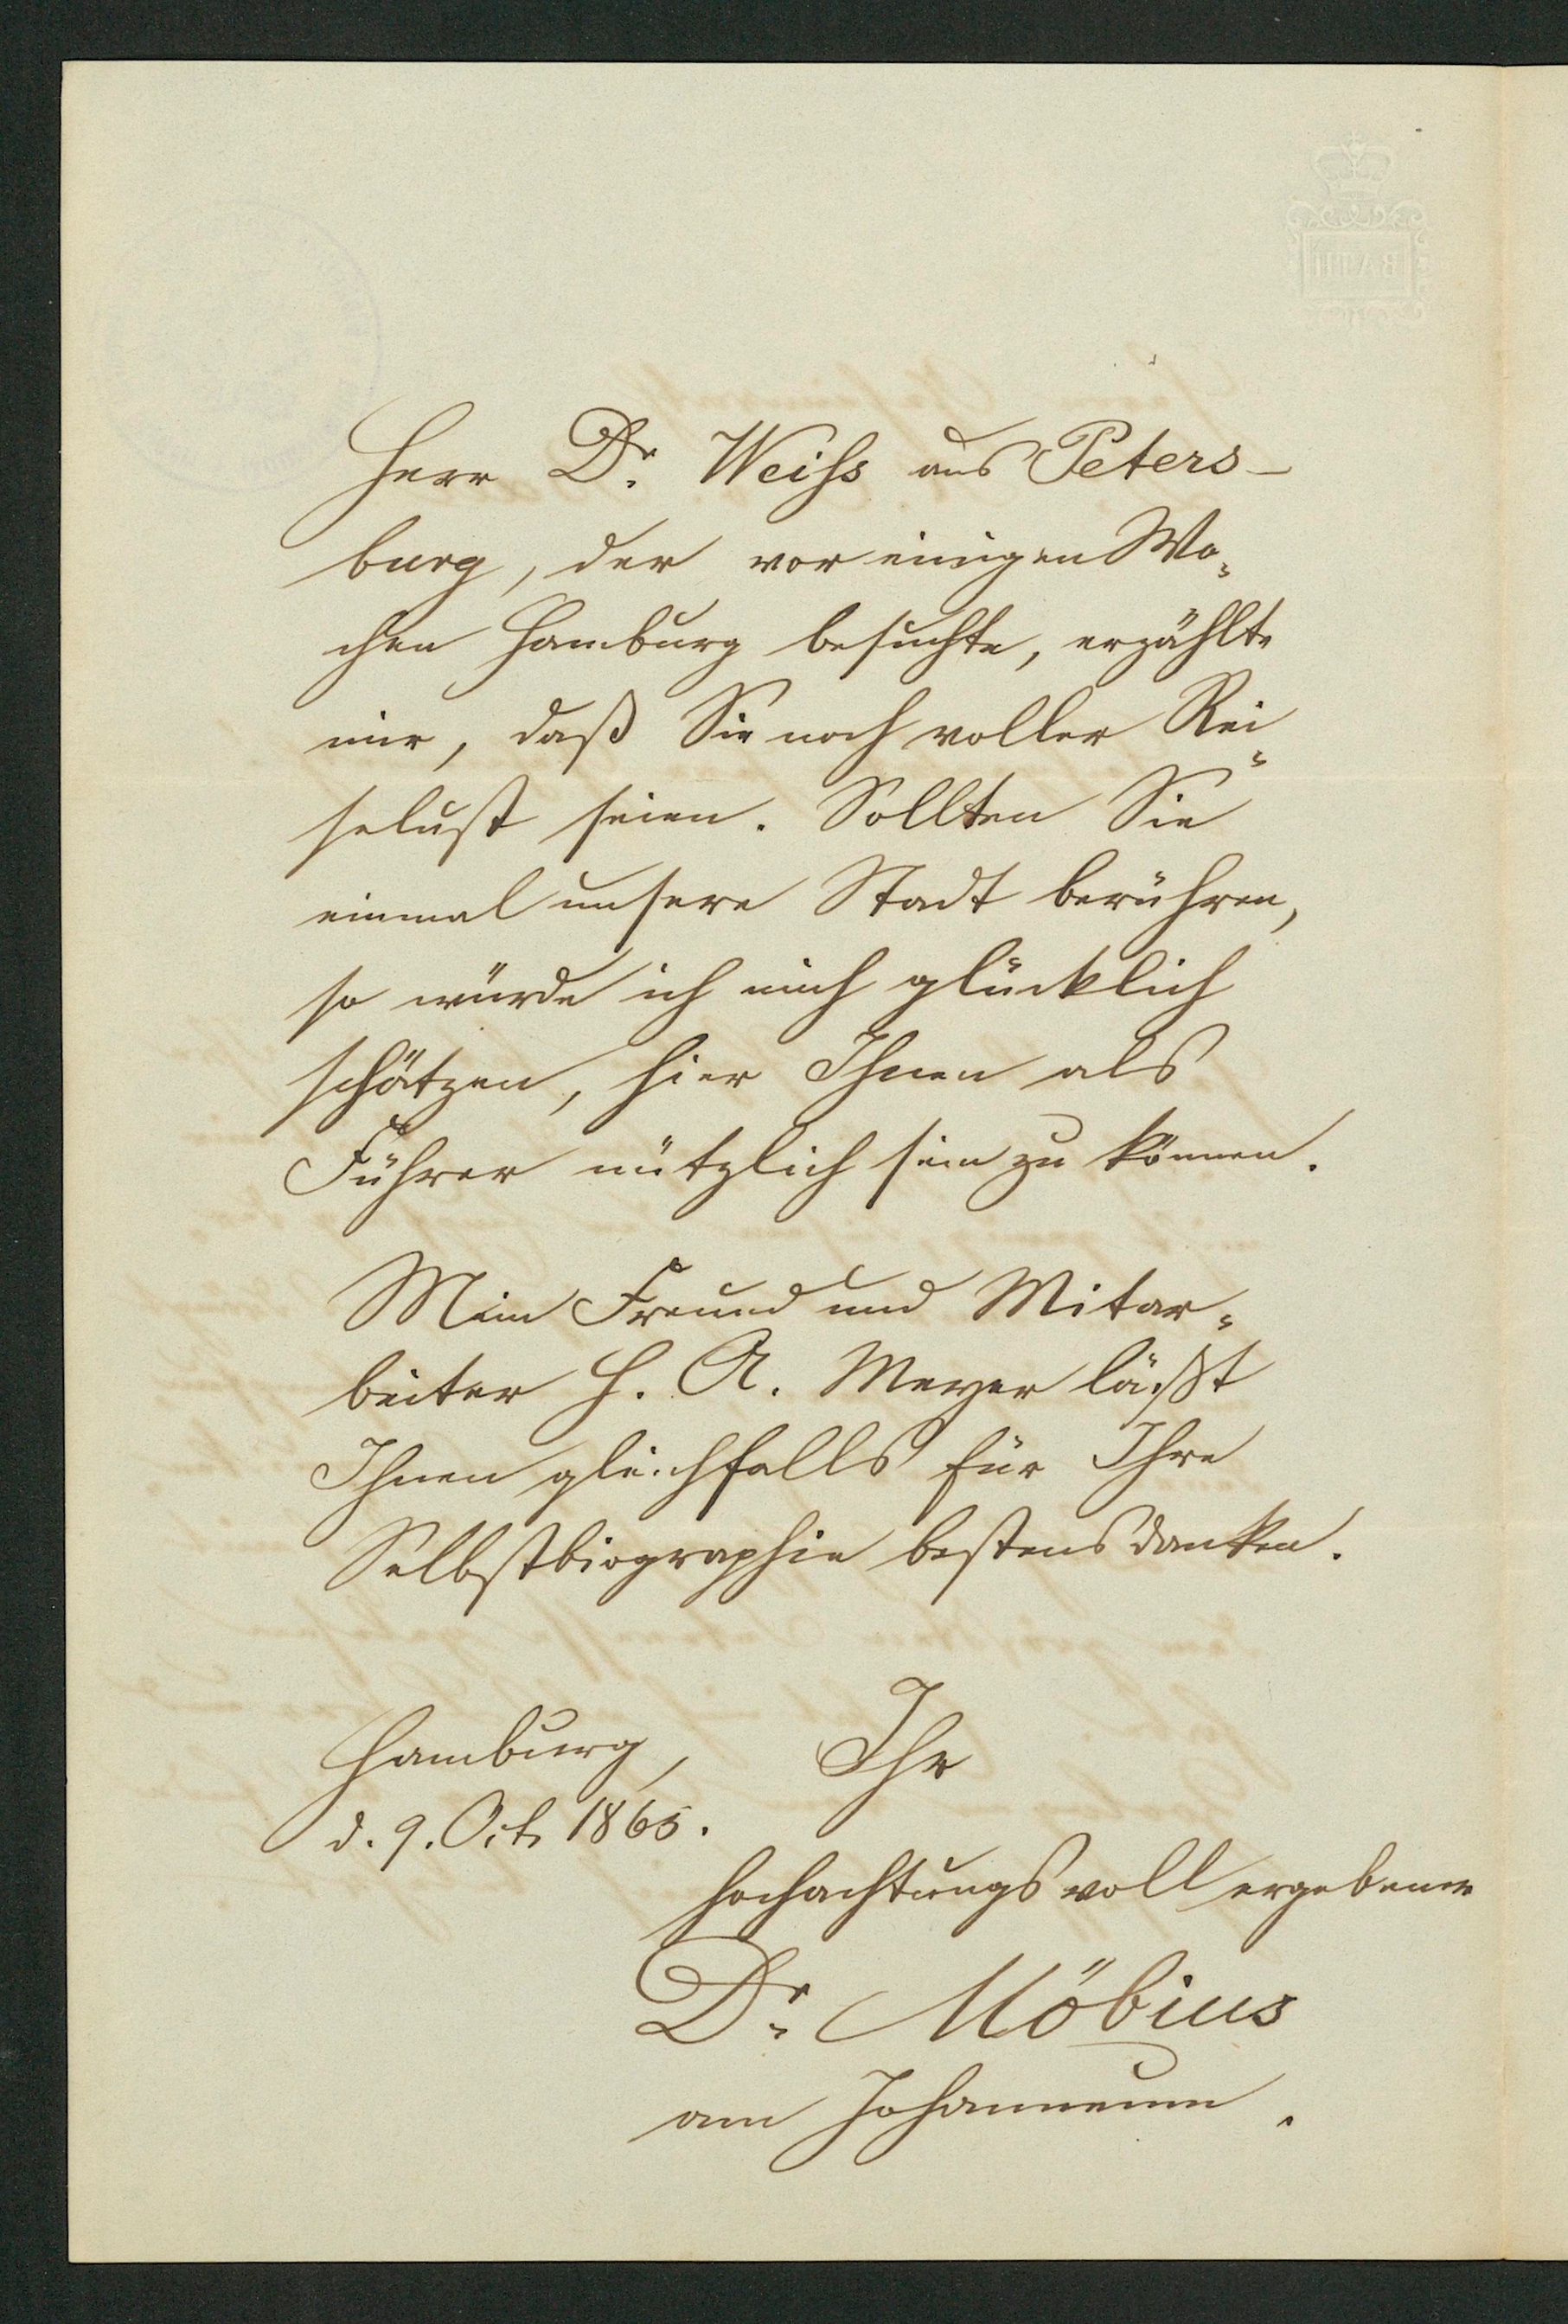 Herr Dr. Weiss aus Peters-
burg, der vor einigen Wo-
chen Hamburg besuchte, erzählte
mir, daß Sie noch voller Rei-
selust seien. Sollten Sie
einmal unsere Stadt berühren,
so würde ich mich glücklich
schätzen, hier Ihnen als
Führer nützlich sein zu können.
Mein Freund und Mitar-
beiter H. A. Meyer läßt
Ihnen gleichfalls für Ihre
Selbstbiographie bestens danken.
Hamburg, Ihr
d. 9. Oct. 1865.
hochachtungsvoll ergebener
Dr. Möbius
am Johanneum.
BATH